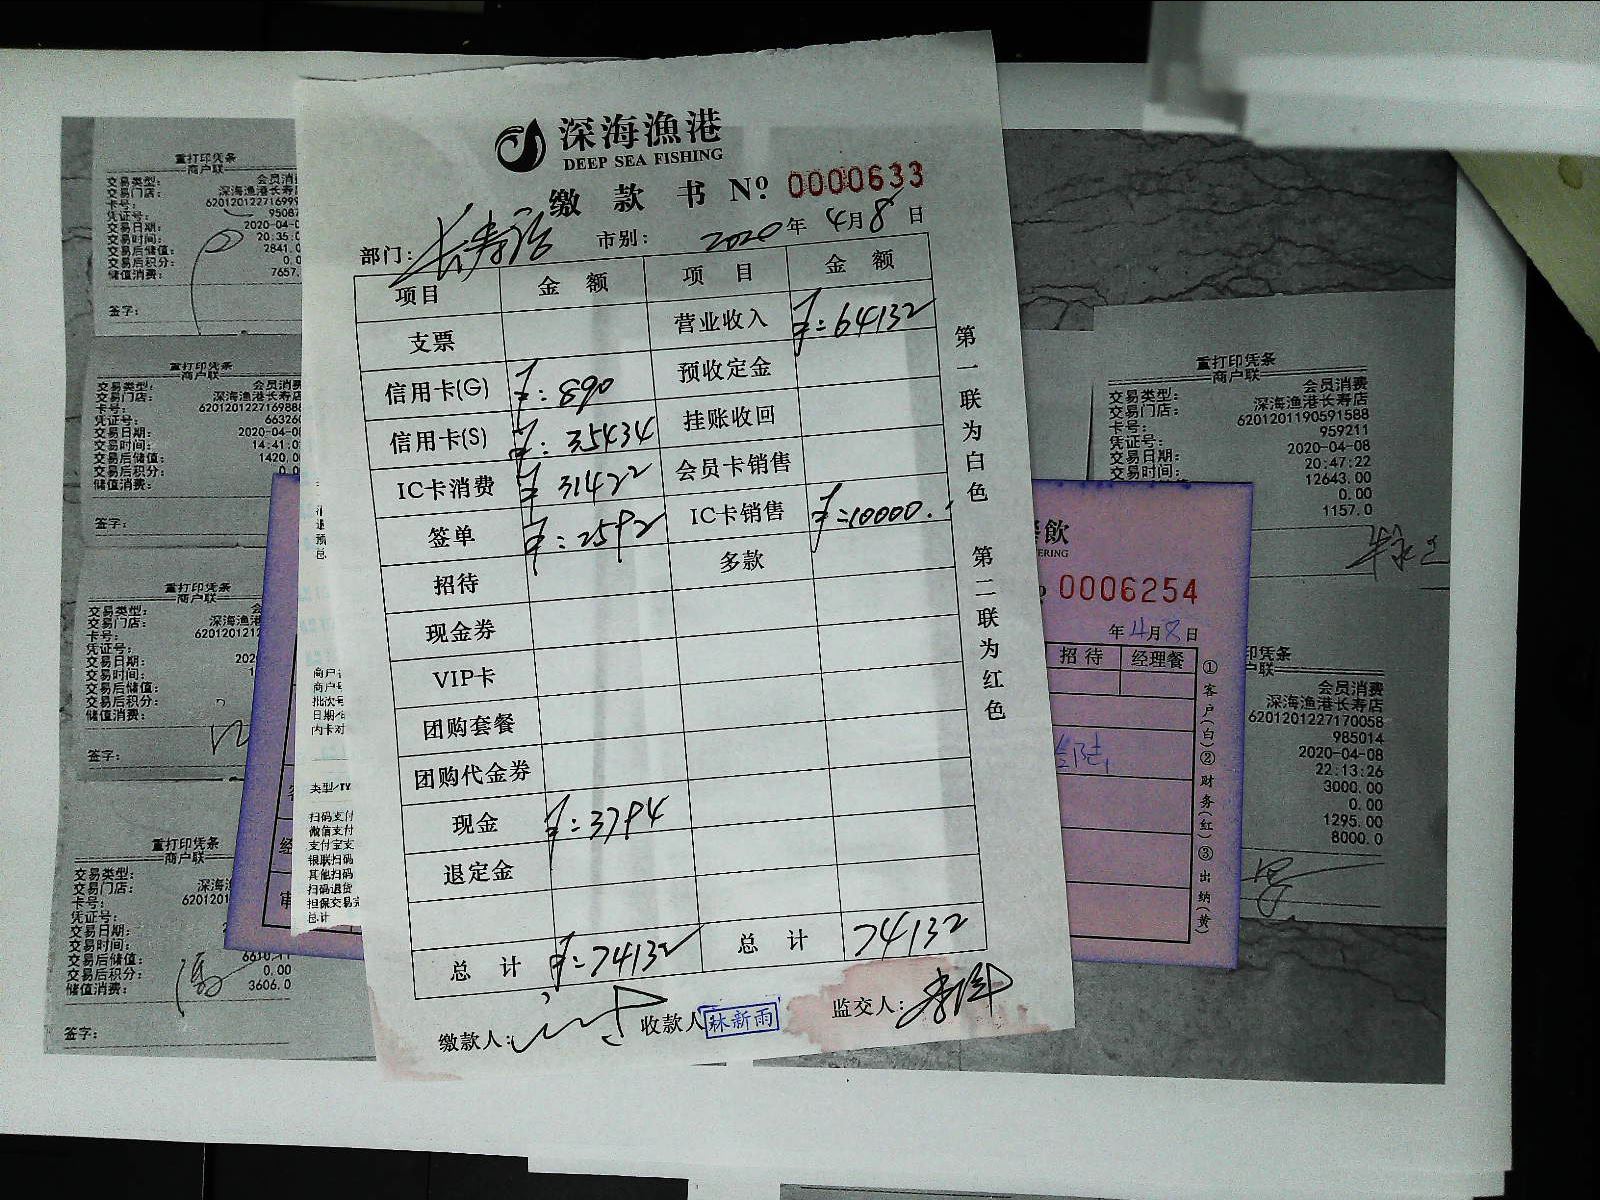 深海漁港
DEEP SEA FISHING
缴款书 Nº 0000633
部门: 长寿店 市别: 2020年4月8日
项目 金额 项目 金额
支票 营业收入 ¥:64132
信用卡(G) ¥:890 预收定金
信用卡(S) ¥:35434 挂账收回
IC卡消费 ¥31422 会员卡销售
签单 ¥:2592 IC卡销售 ¥:10000.
招待 多款
现金券
VIP卡
团购套餐
团购代金券
现金 ¥:3794
退定金
总计 ¥:74132 总计 74132
缴款人: 收款人 林新雨 监交人:
第一联为白色 第二联为红色
重打印凭条
商户联
交易类型: 会员消
交易门店: 深海渔港长寿
卡号: 620120122716999
凭证号: 95087
交易日期: 2020-04-0
交易时间: 20:35:0
交易后储值: 2841.0
交易后积分: 0.0
储值消费: 7657.
签字:
重打印凭条
商户联
交易类型: 会员消费
交易门店: 深海渔港长寿店
卡号: 6201201227169888
凭证号: 663260
交易日期: 2020-04-08
交易时间: 14:41:0
交易后储值: 1420.00
交易后积分: 0.0
储值消费:
签字:
重打印凭条
商户联
交易类型:
交易门店: 深海渔
卡号: 620120121
凭证号:
交易日期: 202
交易时间:
交易后储值:
交易后积分:
储值消费:
签字:
重打印凭条
商户联
交易类型:
交易门店: 深海
卡号: 620120
凭证号:
交易日期:
交易时间:
交易后储值:
交易后积分: 0.00
储值消费: 3606.0
签字:
商户
商户号
批次号
日期/
内卡对
类型/TY
扫码支付
微信支付
支付宝支
银联扫码
其他扫码
扫码退货
担保交易完
总计
重打印凭条
商户联
交易类型: 会员消费
交易门店: 深海渔港长寿店
卡号: 6201201190591588
凭证号: 959211
交易日期: 2020-04-08
交易时间: 20:47:22
12643.00
0.00
1157.0
飲
ERING
0006254
年4月8日
招待 经理餐
①客户(白)②财务(红)③出纳(黄)
印凭条
户联
会员消费
深海渔港长寿店
6201201227170058
985014
2020-04-08
22:13:26
3000.00
0.00
1295.00
8000.0